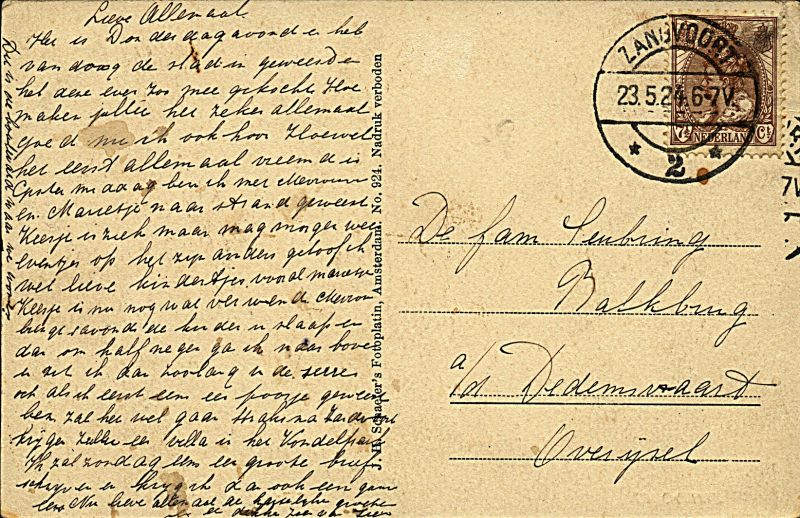 Lieve Allemaal
Het is Donderdagavond en heb
van daag de stad in geweest en
het deze even zoo mee gekocht Hoe
maken jullie het zeker allemaal
goed nu ik ook hoor Hoewel
het eerst allemaal vreemd is
maandag ben ik met Mevrouw
en Marietje naar strand geweest
Keesje is ziek maar mag morgen weer
eventjes op het zijn anders geloof ik
wel lieve kindertjes vooral Marietje
Keesje is nu nog wat verwend Mevrouw
savonds de kinder in slaap en
dan om half negen ga ik naar boven
en zit ik dan zoolang in de serre
och als ik eerst eens een poosje geweest
ben zal het wel gaan straks na Zandvoort
krijgen zullie een villa in het Vondelpark
Ik zal zondag eens een groote brief
schrijven en krijg ik dan ook een gauw
eens Nu lieve allemaal de hartelijke groeten
en dikke zoen van
J. H. Schaefer's Fotoplatin, Amsterdam. No. 924. Nadruk verboden
ZANDVOORT
23.5.24.6-7V.
2
7½ NEDERLAND Ct
7V
De fam Seubring
Balkburg
a/d Dedemsvaart
Overijsel